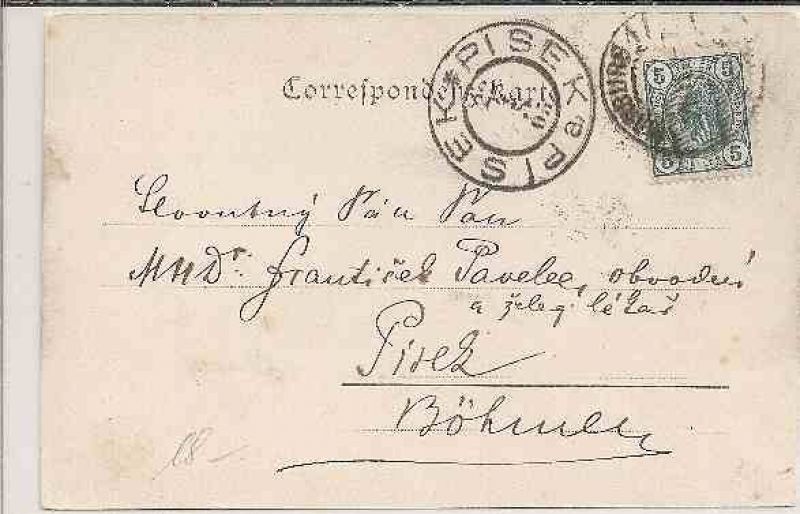 Correspondenz-Karte
PISEK * PISEK
5 5
5 5
Slovutný Pán Pan
MUDr. František Pavelec, obvodní
a želez. lékař
Pisek
Böhmen
18-